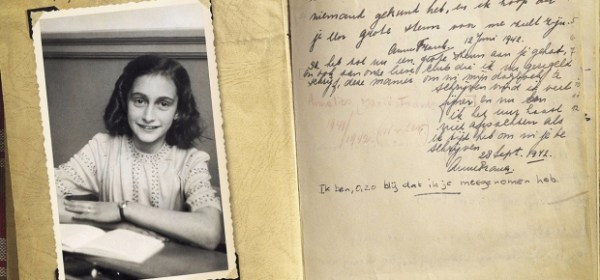 niemand gekunt heb, en ik hoop dat
je een grote steun voor me zult zijn.
Anne Frank. 12 Juni 1942.
Ik heb tot nu een grote steun aan je gehad,
en ook aan onze lieve club die ik nu geregeld
schrijf, deze manier om in mijn dagboek te
schrijven vind ik veel
fijner en nu kan
ik het uur haast
niet afwachten als
ik tijd heb om in je te
schrijven.
28 Sept. 1942.
Anne Frank.
Ik ben, o, zo blij dat ik je meegenomen heb.